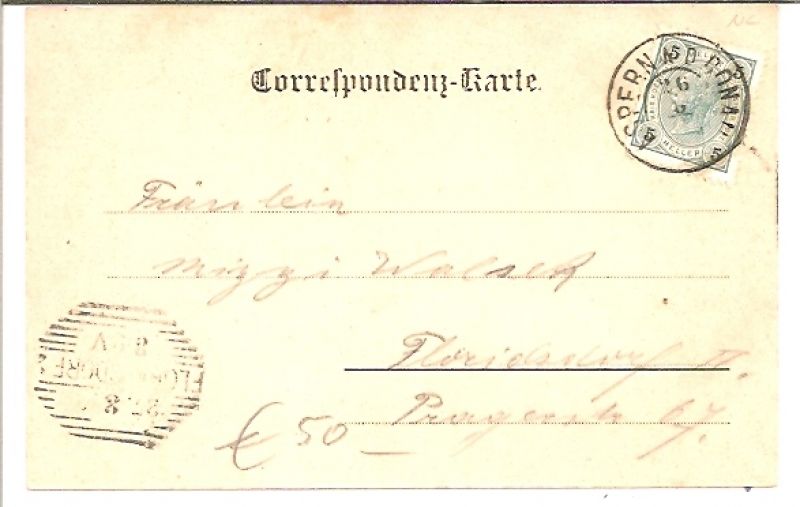 NC
Correspondenz-Karte.
ASPERN A.D. DONAU
26
5 HELLER 5
Fräulein
Mizzi Walsek
Floridsdorf II.
Pragerstr 67.
€ 50 —
8 V
FLORIDSDORF
27.2